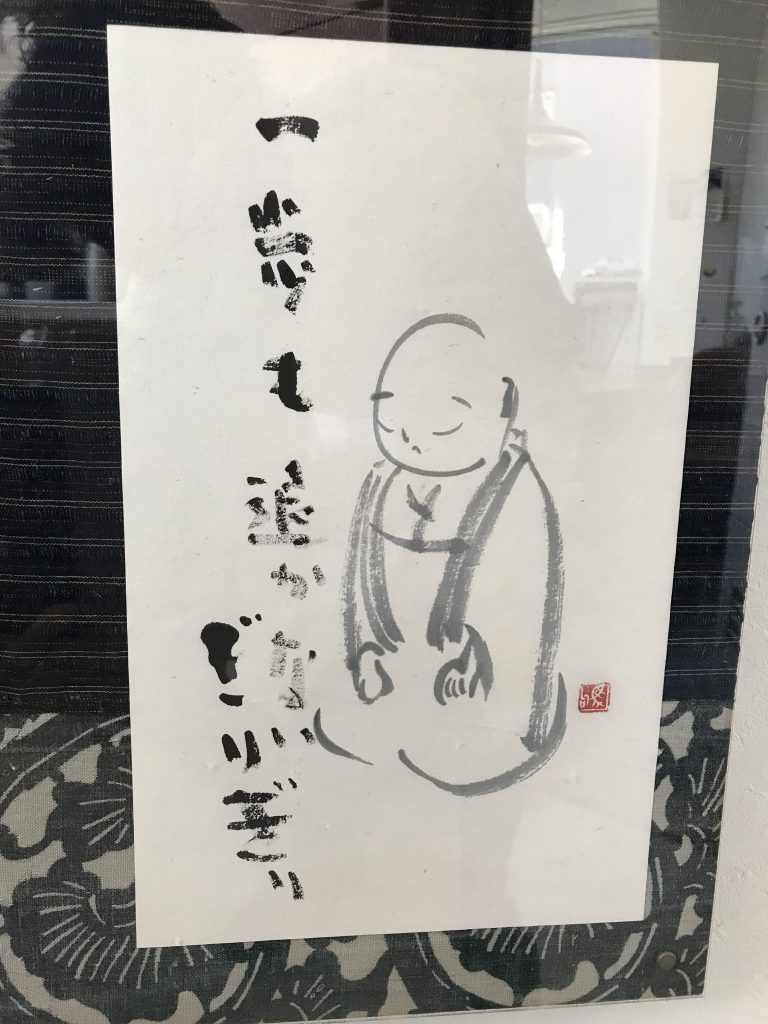 一歩も退かない
ぎりぎり